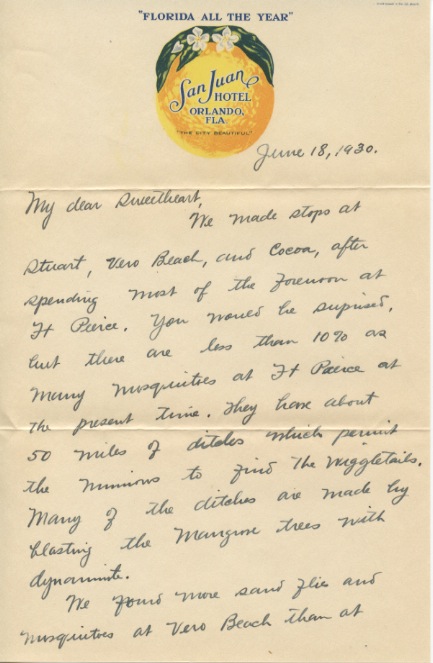 "FLORIDA ALL THE YEAR"
San Juan
HOTEL
ORLANDO,
FLA.
"THE CITY BEAUTIFUL"
June 18, 1930.
My dear Sweetheart,
We made stops at
Stuart, Vero Beach, and Cocoa, after
spending most of the forenoon at
Ft Pierce. You would be suprised,
but there are less than 10% as
many mosquitoes at Ft Pierce at
the present time. They have about
50 miles of ditches which permit
the minnows to find the wiggletails.
Many of the ditches are made by
blasting the Mangrove trees with
dynamite.
We found more sand flies and
mosquitoes at Vero Beach than at